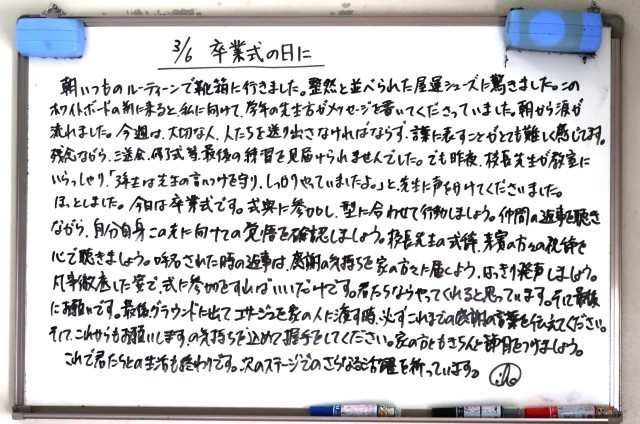 3/6 卒業式の日に
朝いつものルーティーンで靴箱に行きました。整然と並べられた尾運シューズに驚きました。この
ホワイトボードの前に来ると、私に向けて、学年の先生方がメッセージを書いてくださっていました。朝から涙が
流れました。今週は、大切な人、人たちを送り出さなければならず、言葉に表すことがとても難しく感じてます。
残念ながら、三送会、修了式等、最後の練習を見届けられませんでした。でも昨夜、校長先生が教室に
いらっしゃり、「3年生は先生の言いつけを守り、しっかりやっていましたよ。」と先生に声を分けてくださいました。
ほっとしました。今日は卒業式です。式典に参加し、型に合わせて行動しましょう。仲間の返事を聴き
ながら、自分自身この先に向けての覚悟を確認しましょう。校長先生の式辞、来賓の方々の祝辞を
心で聴きましょう。呼名された時の返事は、感謝の気持ちを家の方々に届くよう、はっきり発声しましょう。
凡事徹底した姿で、式に参加をすればいいだけです。君たちならやってくれると思っています。そして最後
にお願いです。最後グラウンドに出てコサージュを家の人に渡す時、必ずこれまでの感謝の言葉を伝えてください。
そして、これからもお願いしますの気持ちを込めて握手をしてください。家の方ともきちんと時間をつけましょう。
これで君たちとの生活も終わりです。次のステージでのさらなる活躍を祈っています。